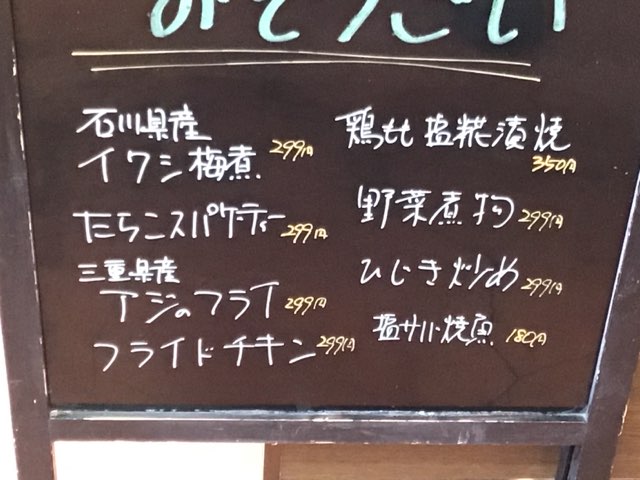 おそうざい
石川県産
イワシ梅煮 299円
たらこスパゲーティー 299円
三重県産
アジのフライ 299円
フライドチキン 299円
鶏もも塩糀漬焼
350円
野菜煮物 299円
ひじき炒め 299円
塩サバ焼魚 180円